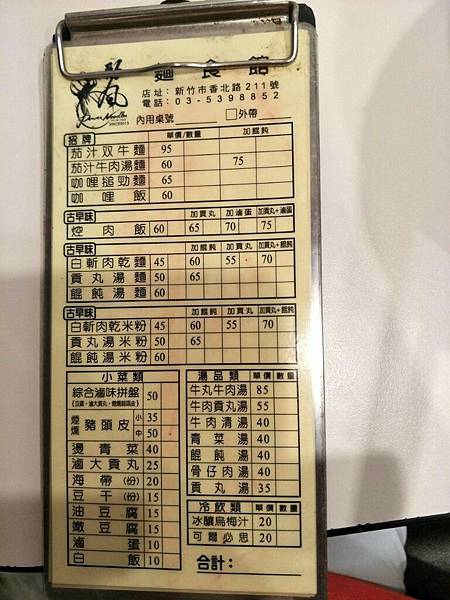 麵食館
店址：新竹市香北路211號
電話：03-5398852
內用桌號 □外帶
招牌 單價/數量 加餛飩
茄汁双牛麵 95
茄汁牛肉湯麵 60 75
咖哩搥勁麵 65
咖哩飯 60
古早味 加貢丸 加滷蛋 加貢丸+滷蛋
焢肉飯 60 65 70 75
古早味 加餛飩 加貢丸 加貢丸+餛飩
白斬肉乾麵 45 60 55 70
貢丸湯麵 50 65
餛飩湯麵 60
古早味 加餛飩 加貢丸 加貢丸+餛飩
白斬肉乾米粉 45 60 55 70
貢丸湯米粉 50 65
餛飩湯米粉 60
小菜類
綜合滷味拼盤 50
煙燻豬頭皮 小 35
中 50
燙青菜 40
滷大貢丸 25
海帶(份) 20
豆干(份) 15
油豆腐 15
嫩豆腐 15
滷蛋 10
白飯 10
湯品類 單價 數量
牛丸牛肉湯 85
牛肉貢丸湯 55
牛肉清湯 40
青菜湯 40
餛飩湯 40
骨仔肉湯 40
貢丸湯 35
冷飲類 單價 數量
冰釀烏梅汁 20
可爾必思 20
合計：